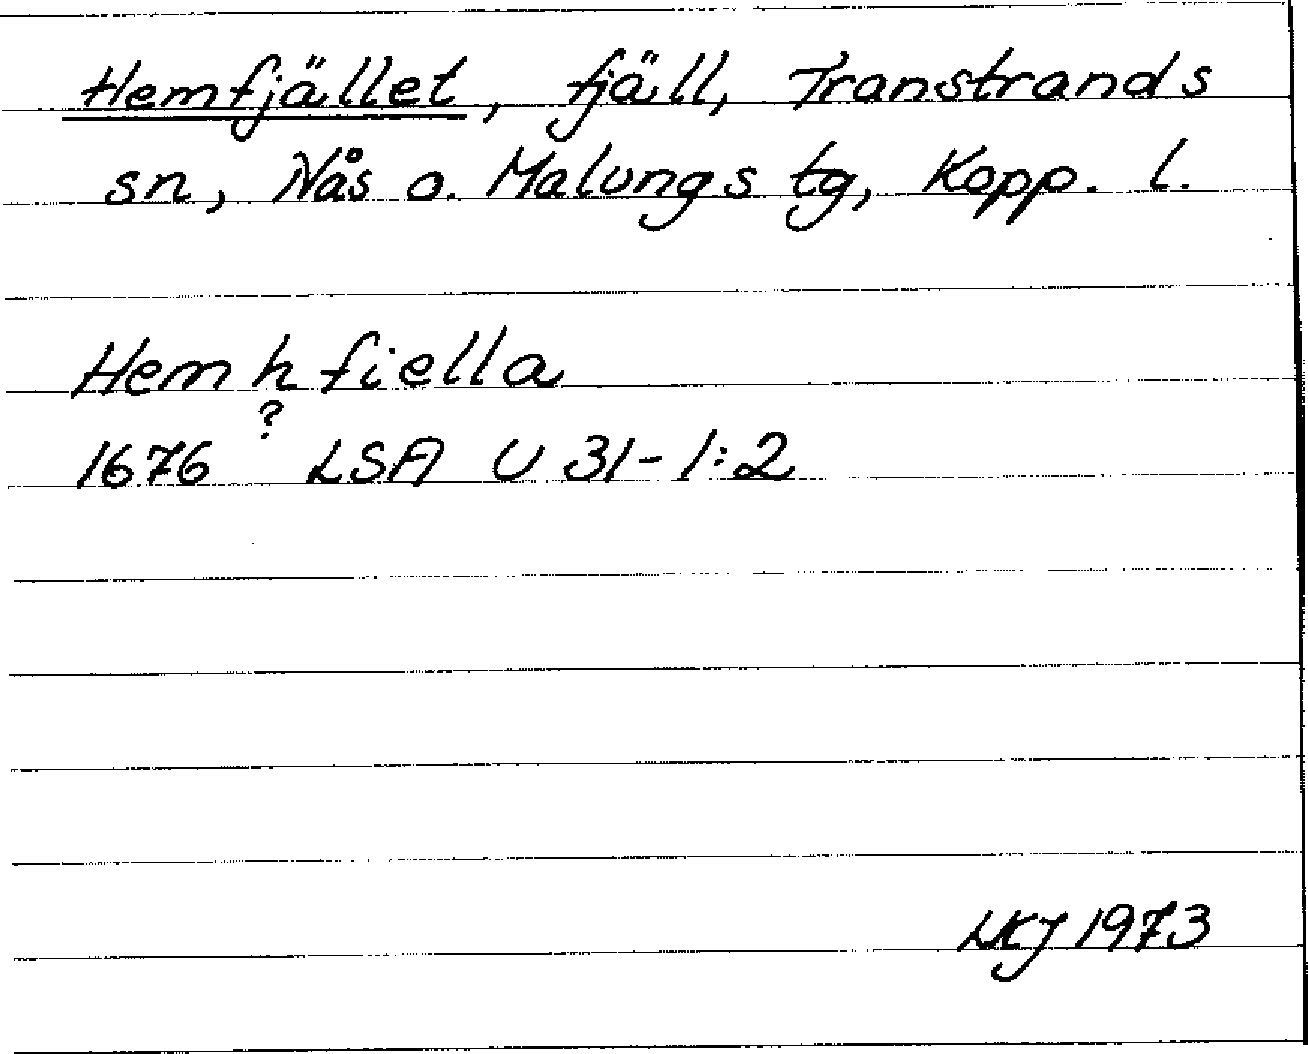 Hemfjället, fjäll, Transtrands
sn, Nås o. Malungs tg, Kopp. l.
Hem h fiella
?
1676 LSA U 31-1:2
LKJ 1973